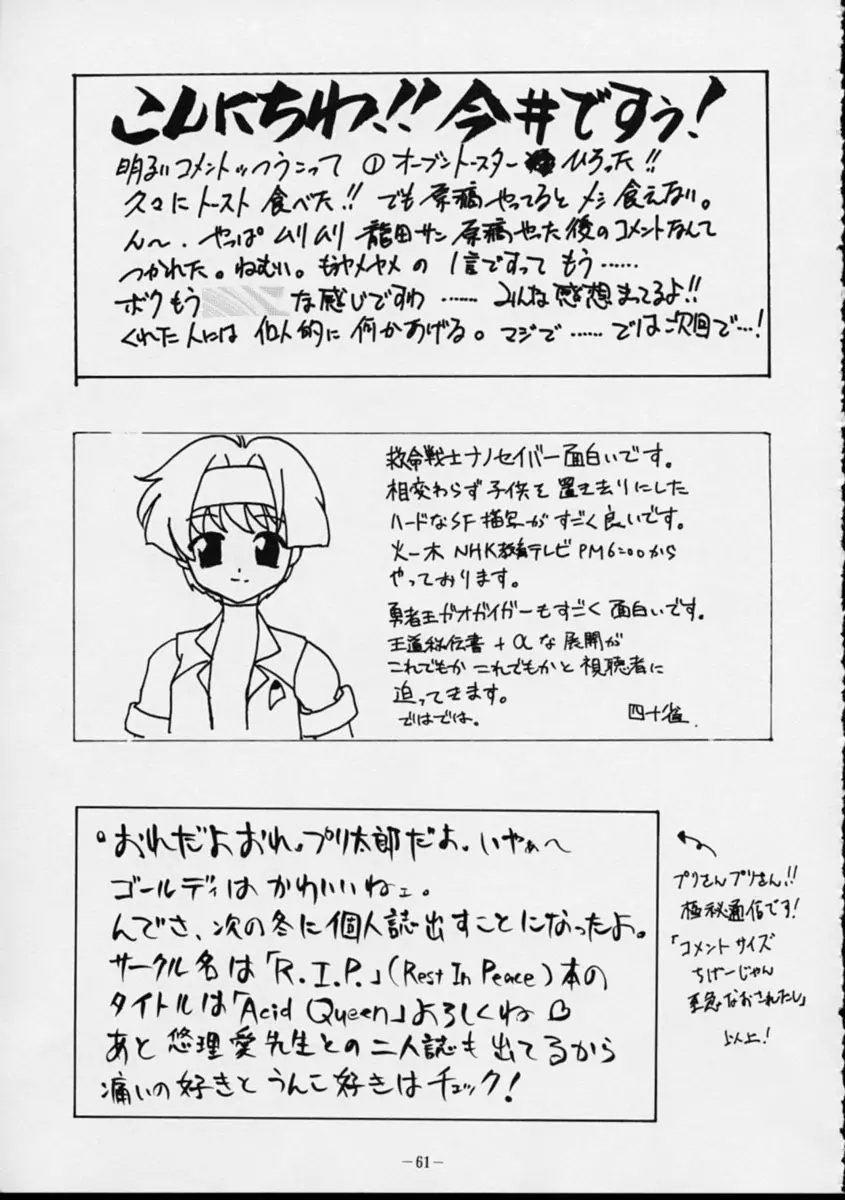 こんにちわ!!今井ですぅ!
明るいコメントっつうこって ①オーブントースター ひろった!!
久々にトースト食べた!!でも原稿やってるとメシ食えない。
ん〜. やっぱムリムリ 龍田サン原稿やった後のコメントなんて
つかれた。ねむい。もうヤメヤメの1言ですって もう……
ボクもう な感じですわ……みんな感想まってるよ!!
くれた人には個人的に何かあげる。マジで……では次回で…!
救命戦士ナノセイバー面白いです。
相変わらず子供を置き去りにした
ハードなSF描写がすごく良いです。
火−木 NHK教育テレビPM6:00から
やっております。
勇者王ガオガイガーもすごく面白いです。
王道秘伝書+αな展開が
これでもかこれでもかと視聴者に
迫ってきます。
ではでは。
四十雀.
おれだよおれ。プリ太郎だよ。いやぁ〜
ゴールディはかわいいねェ。
んでさ、次の冬に個人誌出すことになったよ。
サークル名は「R.I.P.」(Rest In Peace)本の
タイトルは「Acid Queen」よろしくね♡
あと悠理愛先生との二人誌も出てるから
痛いの好きとうんこ好きはチェック!
プリさんプリさん!!
極秘通信です!
「コメントサイズ
ちげーじゃん
至急なおされたし」
以上!
−61−